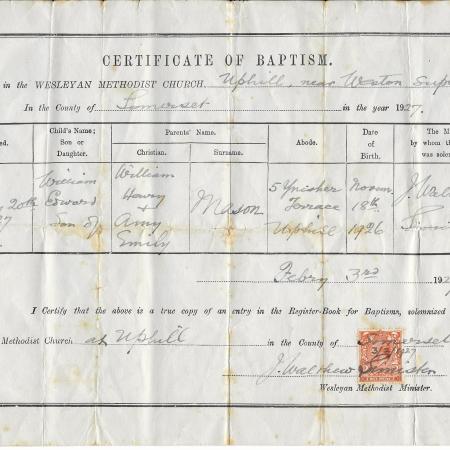 CERTIFICATE OF BAPTISM.
in the WESLEYAN METHODIST CHURCH, Uphill, near Weston Supr
In the County of Somerset in the year 1927.
ed. Child's Name; Son or Daughter. Parents' Name. Christian. Surname. Abode. Date of Birth. The M by whom th was solem
20th 27 William Edward Son of William Henry + Amy Emily Mason Terrace Uphill Novem. 18th 1926 J. Wal
Febry 3rd 192
I Certify that the above is a true copy of an entry in the Register-Book for Baptisms, solemnized
Methodist Church at Uphill in the County of Somerset
3/2/1927
J. Walthew
Wesleyan Methodist Minister.